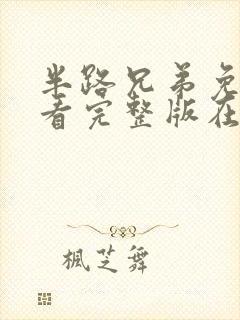 半路兄弟免
看完整版在
枫芝舞